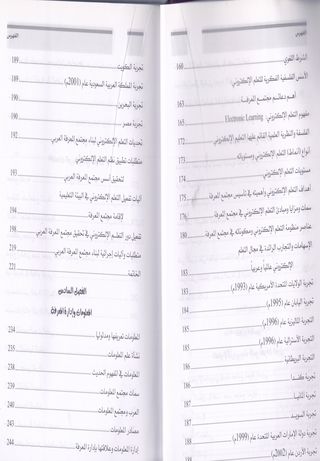 الفهرس
الشرط اللغوي 160
الأسس الفلسفية الفكرية للتعلم الإلكتروني:
أهم دعائم مجتمع المعرفة 163
مفهوم التعلم الإلكتروني Electronic Learning 165
الفلسفة والنظرية العلمية القائم عليها التعليم الإلكتروني 172
أنواع (أنماط) التعلم الإلكتروني ومستوياته 173
مستويات التعلم الإلكتروني 174
أهداف التعلم الإلكتروني وأهميته في تأسيس مجتمع المعرفة 175
سمات ومزايا ومبادئ التعلم الإلكتروني في مجتمع المعرفة 176
عناصر منظومة التعلم الإلكتروني ومكوناته في مجتمع المعرفة 180
الإسهامات والتجارب الرائدة في مجال التعلم
الإلكتروني عالمياً وعربياً 183
تجربة الولايات المتحدة الأمريكية عام (1993م) 183
تجربة اليابان عام (1995م)
تجربة الماليزية عام (1996م)
تجربة الأسترالية عام (1996م) 185
التجربة البريطانية 186
تجربة كندا 186
تجربة ألمانيا 187
تجربة السويد 187
تجربة دولة الإمارات العربية المتحدة عام (1999م) 188
تجربة الأردن عام (2002م)
الفهرس
تجربة الكويت 189
تجربة المملكة العربية السعودية عام (2001م) 189
تجربة البحرين 190
تجربة مصر 190
تحديات التعلم الإلكتروني لبناء مجتمع المعرفة العربي 192
متطلبات تطبيق نظم التعلم الإلكتروني
لتحقيق أسس مجتمع المعرفة العربي 193
آليات تفعيل التعلم الإلكتروني في البيئة التعليمية
لإقامة مجتمع المعرفة 194
تفعيل دور التعلم الإلكتروني في تحقيق مجتمع المعرفة العربي 198
متطلبات وآليات إجرائية لبناء مجتمع المعرفة العربي 219
الخاتمة 221
الفصل السادس
المعلومات وإدارة المعرفة
المعلومات تعريفها ومدلولها 234
نشأة علم المعلومات 235
المعلومات في المفهوم الحديث 238
سمات مجتمع المعلومات 239
العرب ومجتمع المعلومات 240
مصادر المعلومات 243
إدارة المعلومات وعلاقتها بإدارة المعرفة 244